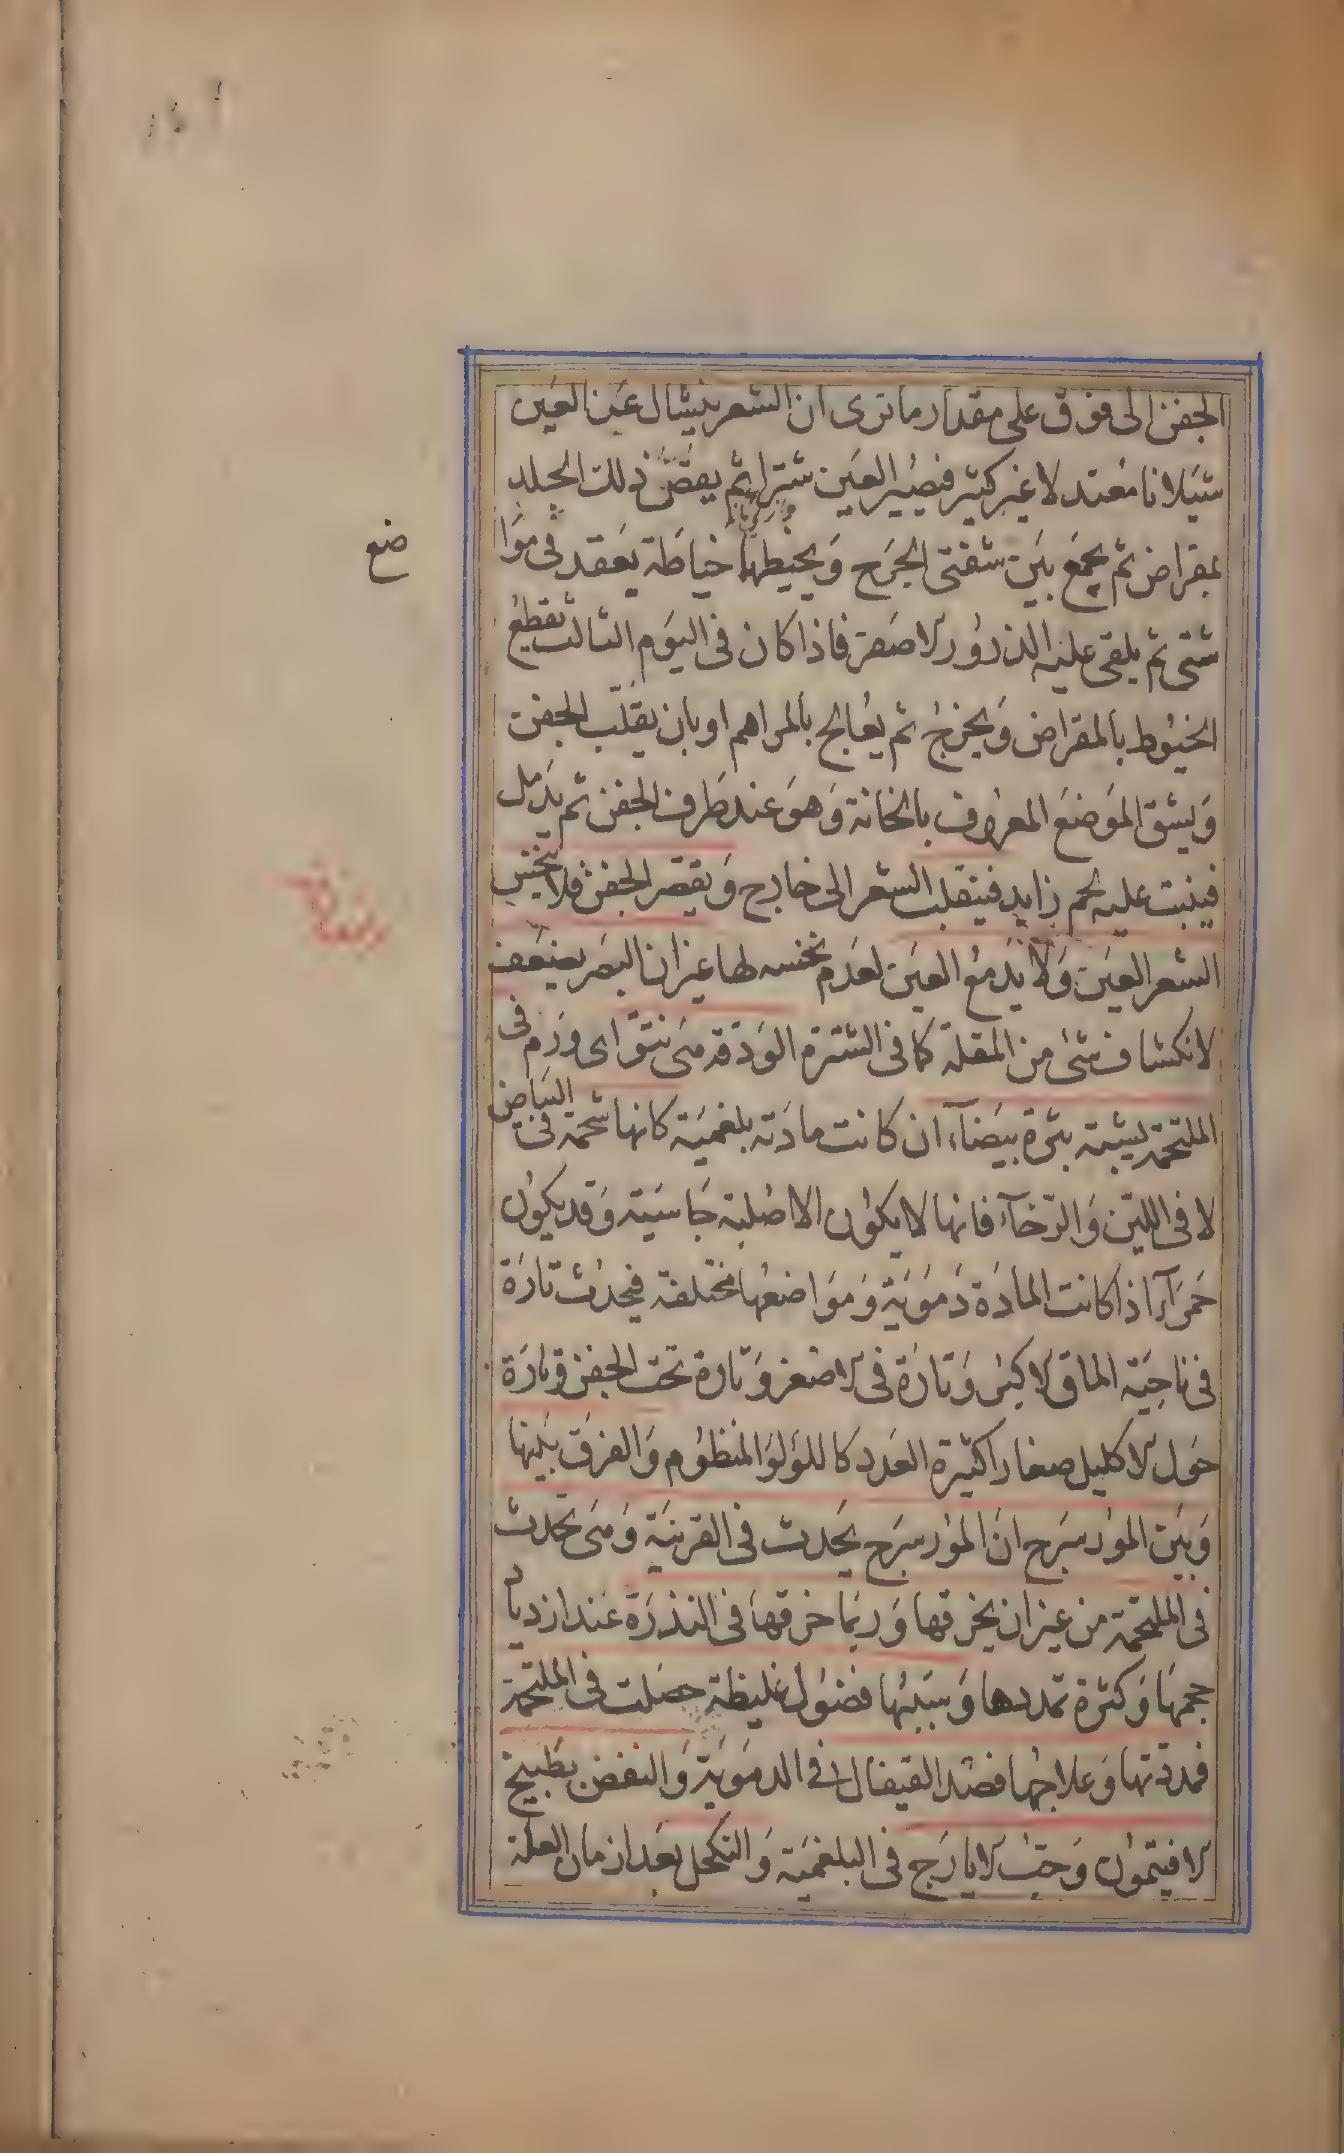 الجفن الى فوق على مقدار ما ترى ان الشعر ينشال عن العين
شيلانا معتدلا غير كثير فيصير العين شترا ثم يقص ذلك الجلد
بمقراض ثم يجمع بين شفتى الجرح ويخيطها خياطة يعقد فى موا
ضع
شتى ثم يلقى عليه الذرور الاصفر فاذا كان فى اليوم الثالث تقطع
الخيوط بالمقراض ويخرج ثم يعالج بالمراهم او بان يقلب الجفن
ويشق الموضع المعروف بالخانة وهو عند طرف الجفن ثم يدمل
فينبت عليه لحم زايد فينقلب الشعر الى خارج ويقصر الجفن فلا ينخس
الشعر العين ولا يدمع العين لعدم نخسه لها غير ان البصر يضعف
لانكشاف شئ من المقلة كما فى الشترة الودقة هى نتو اى ورم فى
الملتحمة يشبه بثرة بيضاء ان كانت مادته بلغمية كانها شحمة فى البياض
لا فى اللين والرخاء فانها لا يكون الا صلبة جاسية وقد يكون
حمراء اذا كانت المادة دموية ومواضعها مختلفة فيحدث تارة
فى ناحية الماق الاكبر وتارة فى الاصغر وتارة تحت الجفن وتارة
حول الاكليل صغارا كثيرة العدد كاللؤلؤ المنظوم والفرق بينها
وبين المورسرج ان المورسرج يحدث فى القرنية وهى تحدث
فى الملتحمة من غير ان يخرقها وربما خرقها فى الندرة عند ازدياد
حجمها وكثرة تمددها وسببها فضول غليظة حصلت فى الملتحمة
فمددتها وعلاجها فصد القيفال فى الدموية والنفض بطبيخ
الافتيمون وحب الايارج فى البلغمية والتكحل بعد ازمان العلة